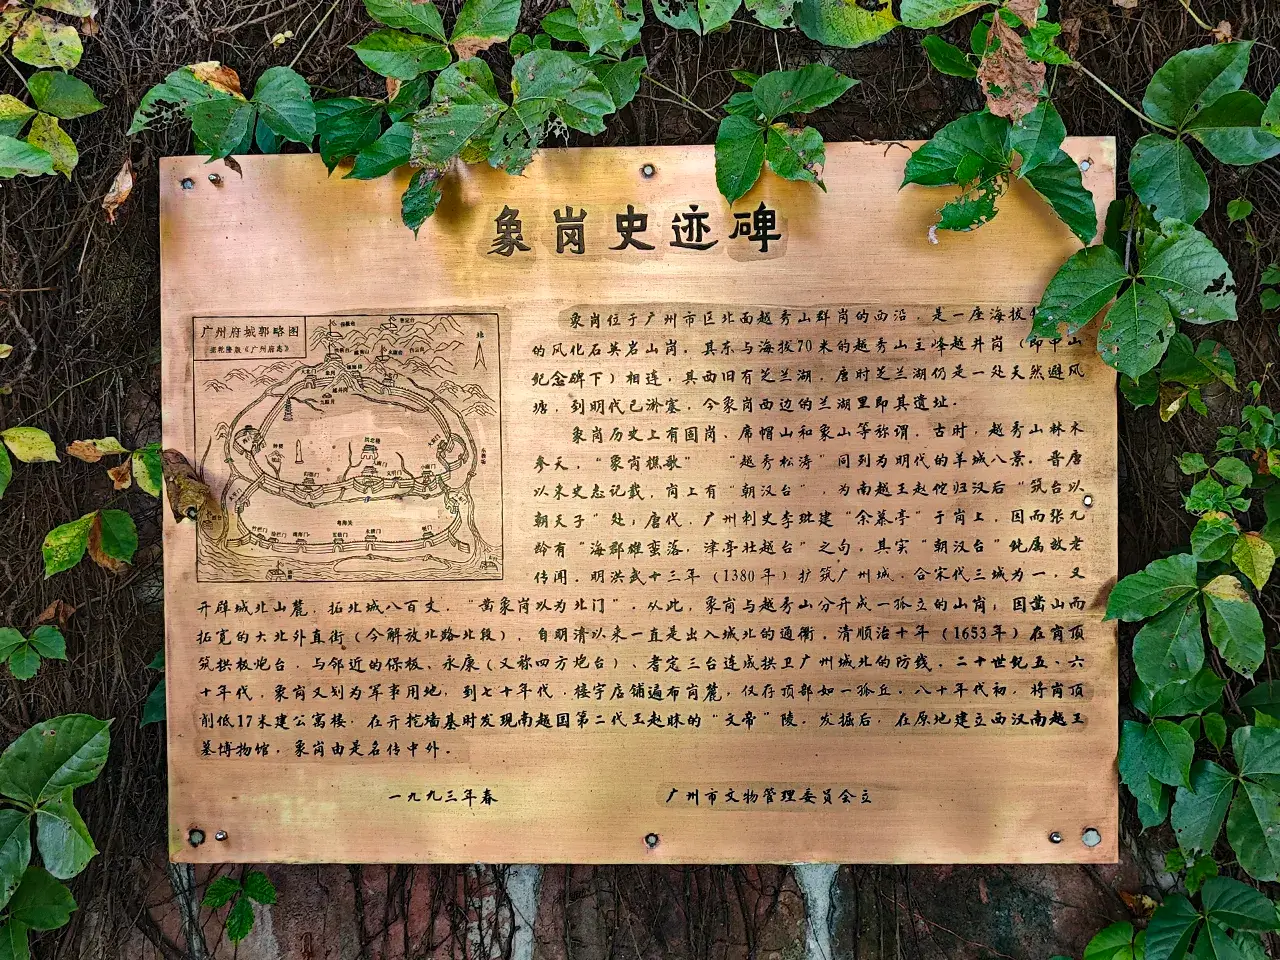 象岗史迹碑
广州府城郭略图
据乾隆版《广州府志》
北
象岗位于广州市区北面越秀山群岗的西沿，是一座海拔
的风化石英岩山岗，其东与海拔70米的越秀山主峰越井岗（即中山
纪念碑下）相连，其西旧有芝兰湖，唐时芝兰湖仍是一处天然避风
塘，到明代已淤塞，今象岗西边的兰湖里即其遗址。
象岗历史上有固岗、席帽山和象山等称谓，古时，越秀山林木
参天，“象岗樵歌” “越秀松涛”同列为明代的羊城八景，晋唐
以来史志记载，岗上有“朝汉台”，为南越王赵佗归汉后“筑台以
朝天子”处；唐代，广州刺史李玭建“余慕亭”于岗上，因而张九
龄有“海郡雄蛮落，津亭壮越台”之句，其实“朝汉台”纯属故老
传闻，明洪武十三年（1380年）扩筑广州城，合宋代三城为一，又
开辟城北山麓，拓北城八百丈，“凿象岗以为北门”，从此，象岗与越秀山分开成一孤立的山岗；因凿山而
拓宽的大北外直街（今解放北路北段），自明清以来一直是出入城北的通衢，清顺治十年（1653年）在岗顶
筑拱极炮台，与邻近的保极、永康（又称四方炮台）、耆定三台连成拱卫广州城北的防线，二十世纪五、六
十年代，象岗又划为军事用地，到七十年代，楼宇店铺遍布岗麓，仅存顶部如一孤丘，八十年代初，将岗顶
削低17米建公寓楼，在开挖墙基时发现南越国第二代王赵眜的“文帝”陵，发掘后，在原地建立西汉南越王
墓博物馆，象岗由是名传中外。
一九九三年春
广州市文物管理委员会立